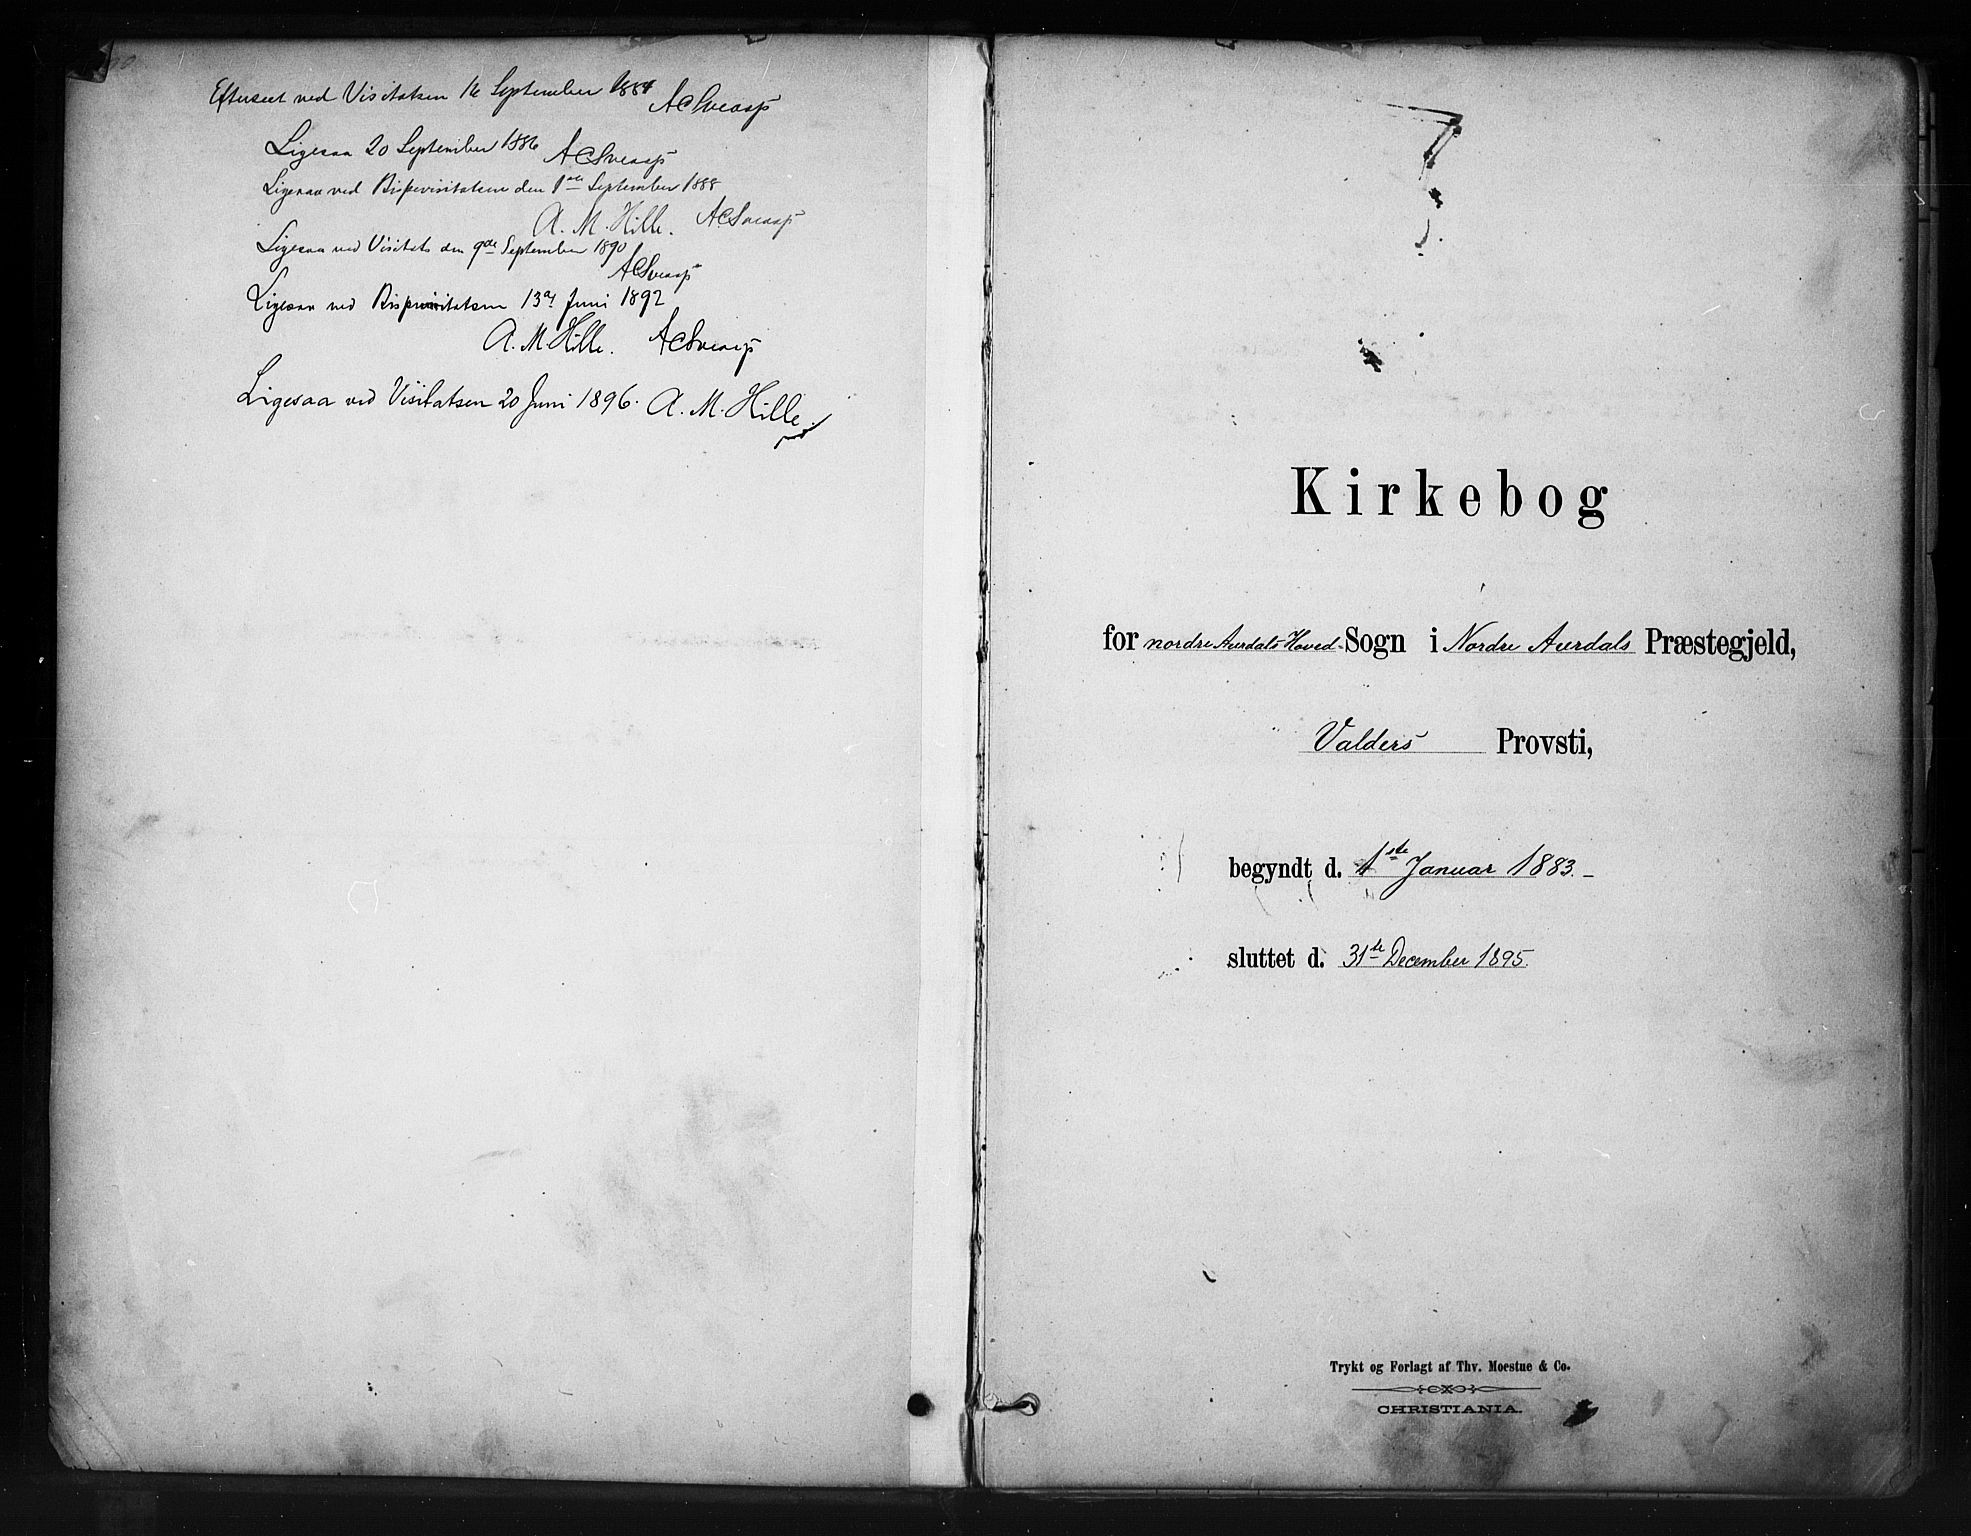 Efterseet ved Visitatsen 16 September 1884 ACSveaas
Ligesaa 20 September 1886 ACSveaas
Ligesaa ved Bispevisitatsen den 1ste September 1888
A. M. Hille. ACSveaas
Ligesaa ved Visitats den 9de September 1890
ACSveaas
Ligesaa ved Bispevisitatsen 13de Juni 1892
A. M. Hille. ACSveaas
Ligesaa ved Visitatsen 20 Juni 1896. A. M. Hille.
Kirkebog
for nordre Aurdals Hoved-Sogn i Nordre Aurdals Præstegjeld,
Valders Provsti,
begyndt d. 1ste Januar 1883.
sluttet d. 31te December 1895
Trykt og Forlagt af Thv. Moestue & Co.
CHRISTIANIA.